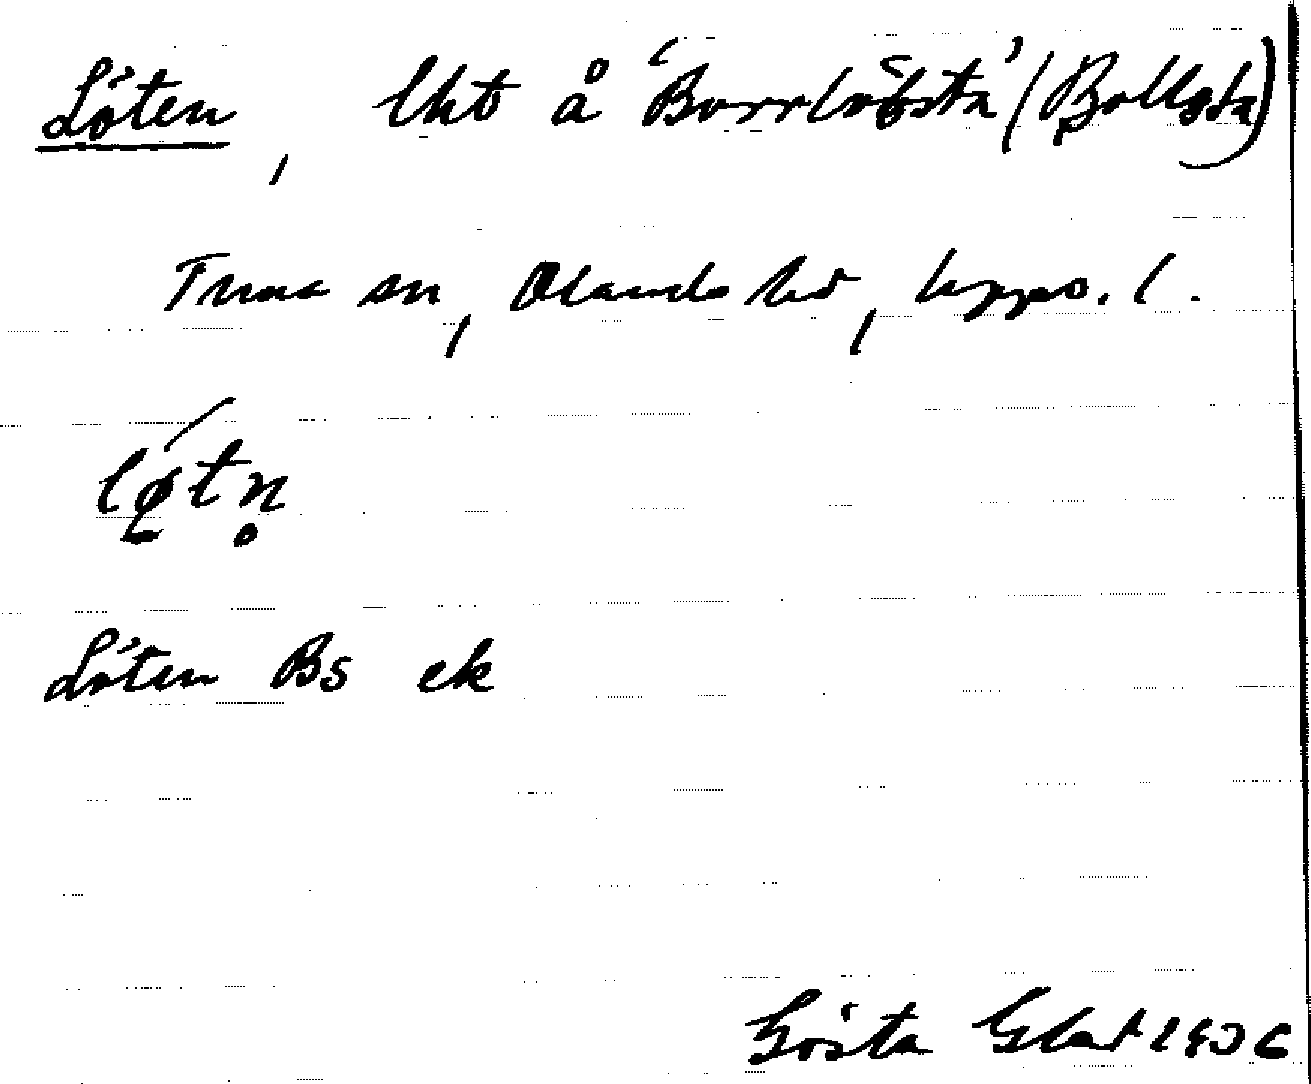 Löten, lht å 'Borrlöbsta' (Bollgsta)
Tuna sn, Olands hd, Upps. l.
lø̠tn̥
Löten Bs ek
Gösta Glad 1936